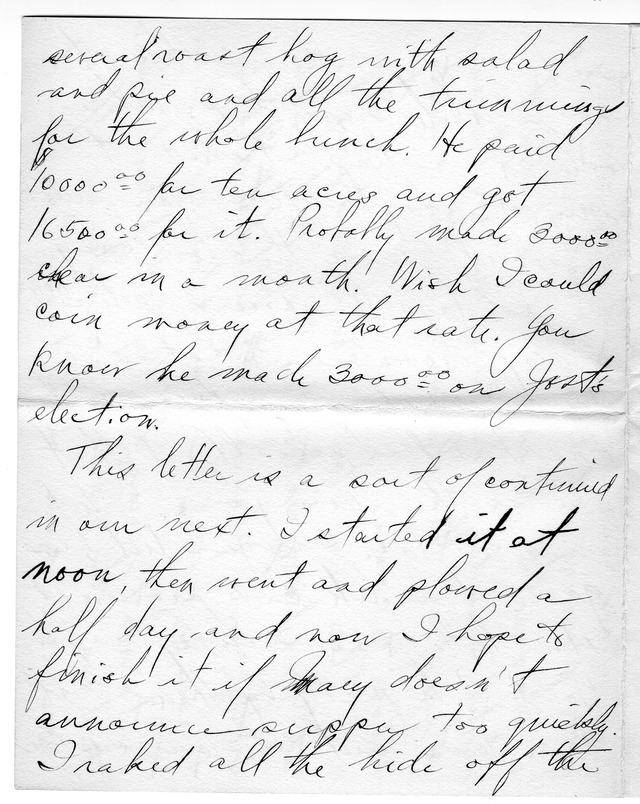 several roast hog with salad
and pie and all the trimmings
for the whole bunch. He paid
$10000.00 for ten acres and got
16500.00 for it. Probably made 3000.00
clear in a month. Wish I could
coin money at that rate. You
know he made 3000.00 on Jost's
election.
This letter is a sort of continued
in our next. I started it at
noon, then went and plowed a
half day and now I hope to
finish it if Mary doesn't
announce supper too quickly.
I raked all the hide off the